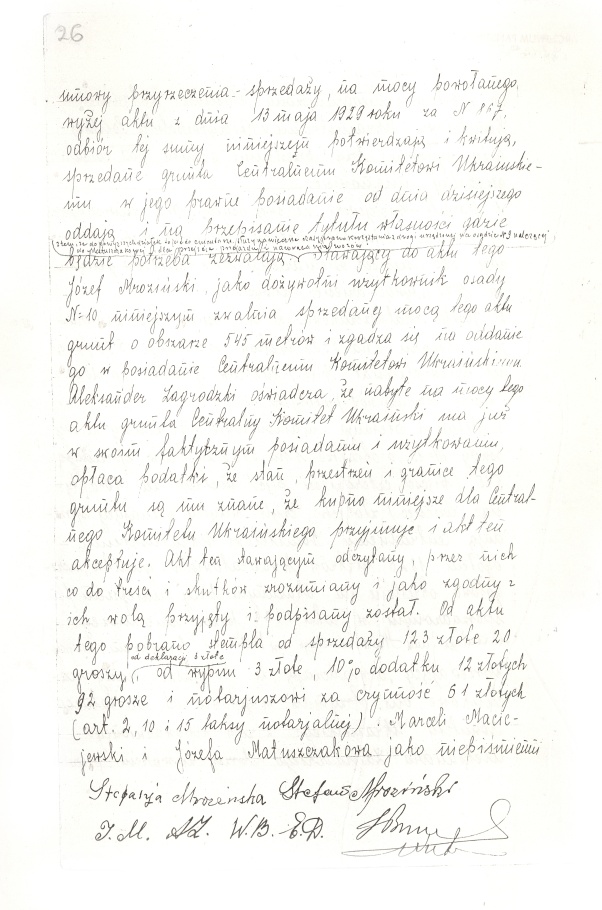 26
umowy przyrzeczenia-sprzedaży, na mocy powołanego
wyżej aktu z dnia 13 maja 1929 roku za N 867,
odbiór tej sumy niniejszem potwierdzają i kwitują,
sprzedane grunta Centralnemu Komitetowi Ukraińskie-
mu w jego prawne posiadanie od dnia dzisiejszego
oddają i na przepisanie tytułu własności gdzie
będzie potrzeba zezwalają. Stawający do aktu tego
Józef Mroziński, jako dożywotni użytkownik osady
N-10 niniejszym zwalnia sprzedany mocą tego aktu
grunt o obszarze 545 metrów i zgadza się na oddanie
go w posiadanie Centralnemu Komitetowi Ukraińskiemu.
Aleksander Zagrodzki oświadcza, że nabyte na mocy tego
aktu grunta Centralny Komitet Ukraiński ma już
w swoim faktycznym posiadaniu i użytkowaniu,
opłaca podatki, że stan, przestrzeń i granice tego
gruntu są mu znane, że kupno niniejsze dla Central-
nego Komitetu Ukraińskiego przyjmuje i akt ten
akceptuje. Akt ten stawającym odczytany, przez nich
co do treści i skutków zrozumiany i jako zgodny z
ich wolą przyjęty i podpisany został. Od aktu
tego pobrano stempla od sprzedaży 123 złote 20
od deklaracji 3 złote
groszy, od wypisu 3 złote, 10% dodatku 12 złotych
92 grosze i notarjuszowi za czynność 61 złotych
(art. 2, 10 i 15 taksy notarjalnej). Marceli Macie-
jewski i Józefa Matuszczakowa jako niepiśmienni
Stefanja Mrozińska Stefan Mroziński
J. M. AZ. W.B. E.D.